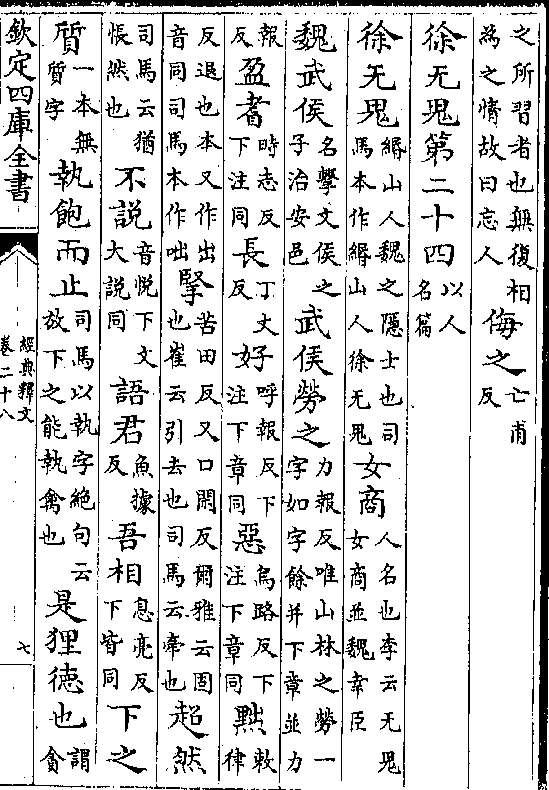 之所習者也無復相為之情故曰忘人侮之亡甫反
徐无鬼第二十四以人名篇
徐无鬼緡山人魏之隱士也司馬本作緡山人徐无鬼女商人名也李云无鬼女商並魏幸臣
魏武侯名擊文侯之子治安邑武侯勞之力報反唯山林之勞一字如字餘并下章並力
報反盈耆時志反下注同長丁丈反好呼報反下注下章同惡烏路反下注下章同黜敕律
反退也本又作出音同司馬本作咄掔苦田反又口閑反爾雅云固也崔云引去也司馬云牽也超然
司馬云猶悵然也不說音悅下文大說同語君魚據反吾相息亮反下皆同下之
質一本無質字執飽而止司馬以執字絕句云放下之能執禽也是狸德也謂貪
欽定四庫全書
經典釋文
卷二十八
七